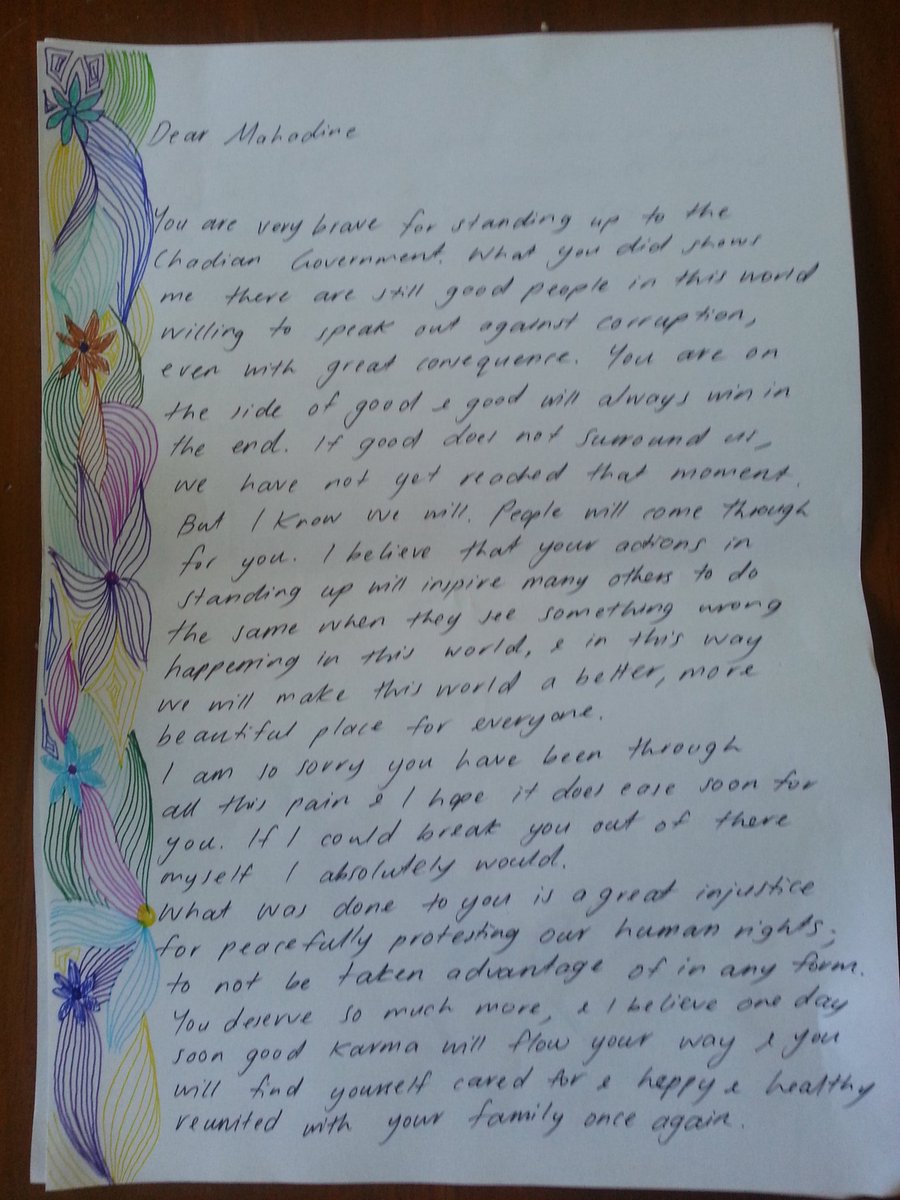 Dear Mahadine
You are very brave for standing up to the
Chadian Government. What you did shows
me there are still good people in this world
willing to speak out against corruption,
even with great consequence. You are on
the side of good & good will always win in
the end. If good does not surround us,
we have not yet reached that moment.
But I know we will. People will come through
for you. I believe that your actions in
standing up will inspire many others to do
the same when they see something wrong
happening in this world, & in this way
we will make this world a better, more
beautiful place for everyone.
I am so sorry you have been through
all this pain & I hope it does ease soon for
you. If I could break you out of there
myself I absolutely would.
What was done to you is a great injustice
for peacefully protesting our human rights;
to not be taken advantage of in any form.
You deserve so much more, & I believe one day
soon good karma will flow your way & you
will find yourself cared for & happy & healthy
reunited with your family once again.